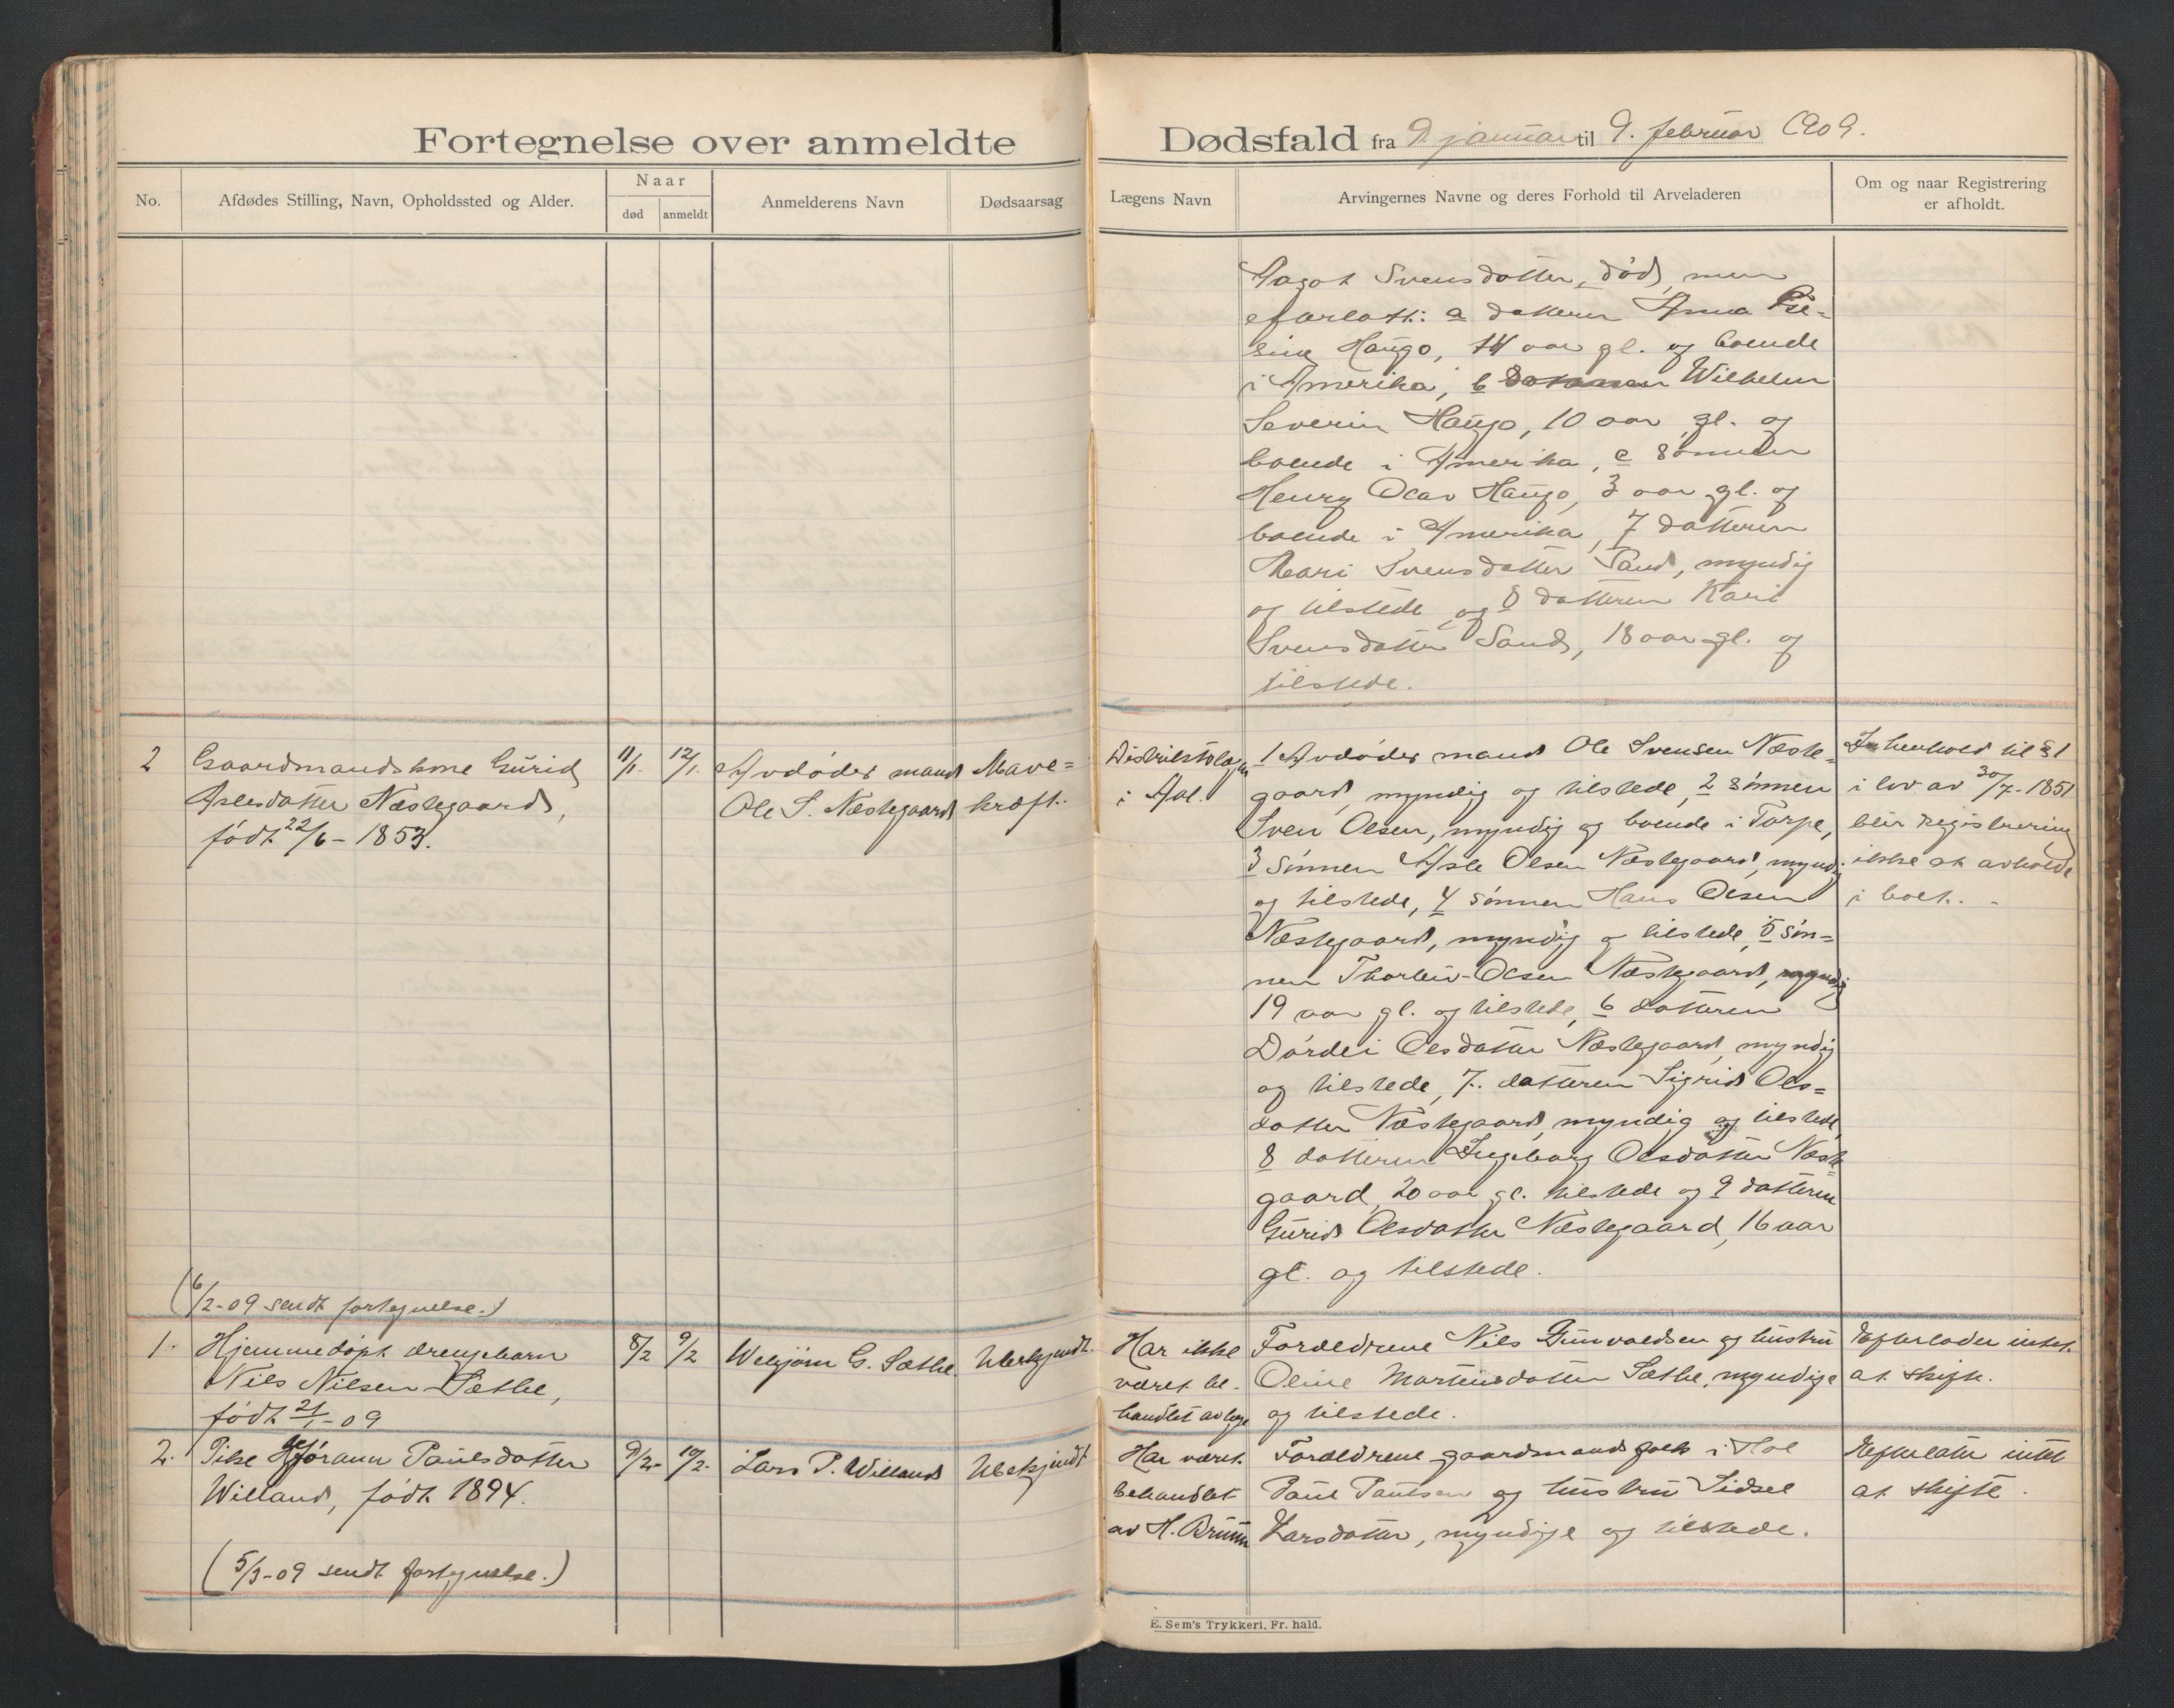 Fortegnelse over anmeldte Dødsfald fra 9 januar til 9. februar 1909.
No.
Afdødes Stilling, Navn, Opholdssted og Alder.
Naar
død
anmeldt
Anmelderens Navn
Dødsaarsag
Lægens Navn
Arvingernes Navne og deres Forhold til Arveladeren
Om og naar Registrering
er afholdt.
Aagot Svensdatter, död, men
efterlatt: a datteren Anna
Haugo, 14 aar gl. og boende
i Amerika, b Wilhelm
Severin Haugo, 10 aar gl. og
boende i Amerika, c sönnen
Henry Oscar Haugo, 3 aar gl. og
boende i Amerika, 7 datteren
Mari Svensdatter Sand, myndig
og tilstede og 8 datteren Kari
Svensdatter Sand, 18 aar gl. og
tilstede.
2
Gaardmandskone Gurid
Aslesdatter Næstegaard,
født 22/6 - 1853.
11/1.
12/1.
Avdødes mand
Ole S. Næstegaard
Mave=
kræft.
Distriktslægen
i Aal.
1 Avdødes mand Ole Svensen Næste=
gaard, myndig og tilstede, 2 sönnen
Sven Olsen, myndig og boende i Torpe,
3 sönnen Asle Olsen Næstegaard, myndig
og tilstede, 4 sönnen Hans Olsen
Næstegaard, myndig og tilstede, 5 sön=
nen Thorleiv Olsen Næstegaard, myndig
19 aar gl. og tilstede, 6 datteren
Dördei Olsdatter Næstegaard, myndig
og tilstede, 7. datteren Sigrid Ols=
datter Næstegaard, myndig og tilstede,
8 datteren Ingeborg Olsdatter Næste=
gaard, 20 aar gl. tilstede og 9 datteren
Gurid Olsdatter Næstegaard, 16 aar
gl. og tilstede.
I henhold til § 1
i lov av 30/7 - 1851
blir registrering
ikke at avholde
i boet.
(6/2-09 sendt fortegnelse.)
1.
Hjemmedøpt drengebarn
Nils Nilsen Sæthe,
født 21/1 - 09
8/2
9/2
Webjörn G. Sæthe.
Ubekjendt.
Har ikke
været be-
handlet av læge
Forældrene Nils Gunvaldsen og hustru
Oline Martinsdatter Sæthe, myndige
og tilstede.
Efterlader intet
at skifte.
2.
Pike Gjöran Paulsdatter
Willand, født 1894.
9/2-
10/2.
Lars P. Willand
Ubekjendt
Har været
behandlet
av H. Bruun
Forældrene gaardmandsfolk i Hol
Paul Paulsen og hustru Sidsel
Larsdatter, myndige og tilstede.
Efterlater intet
at skifte.
(5/3-09 sendt fortegnelse.)
E. Sem's Trykkeri. Fr. hald.